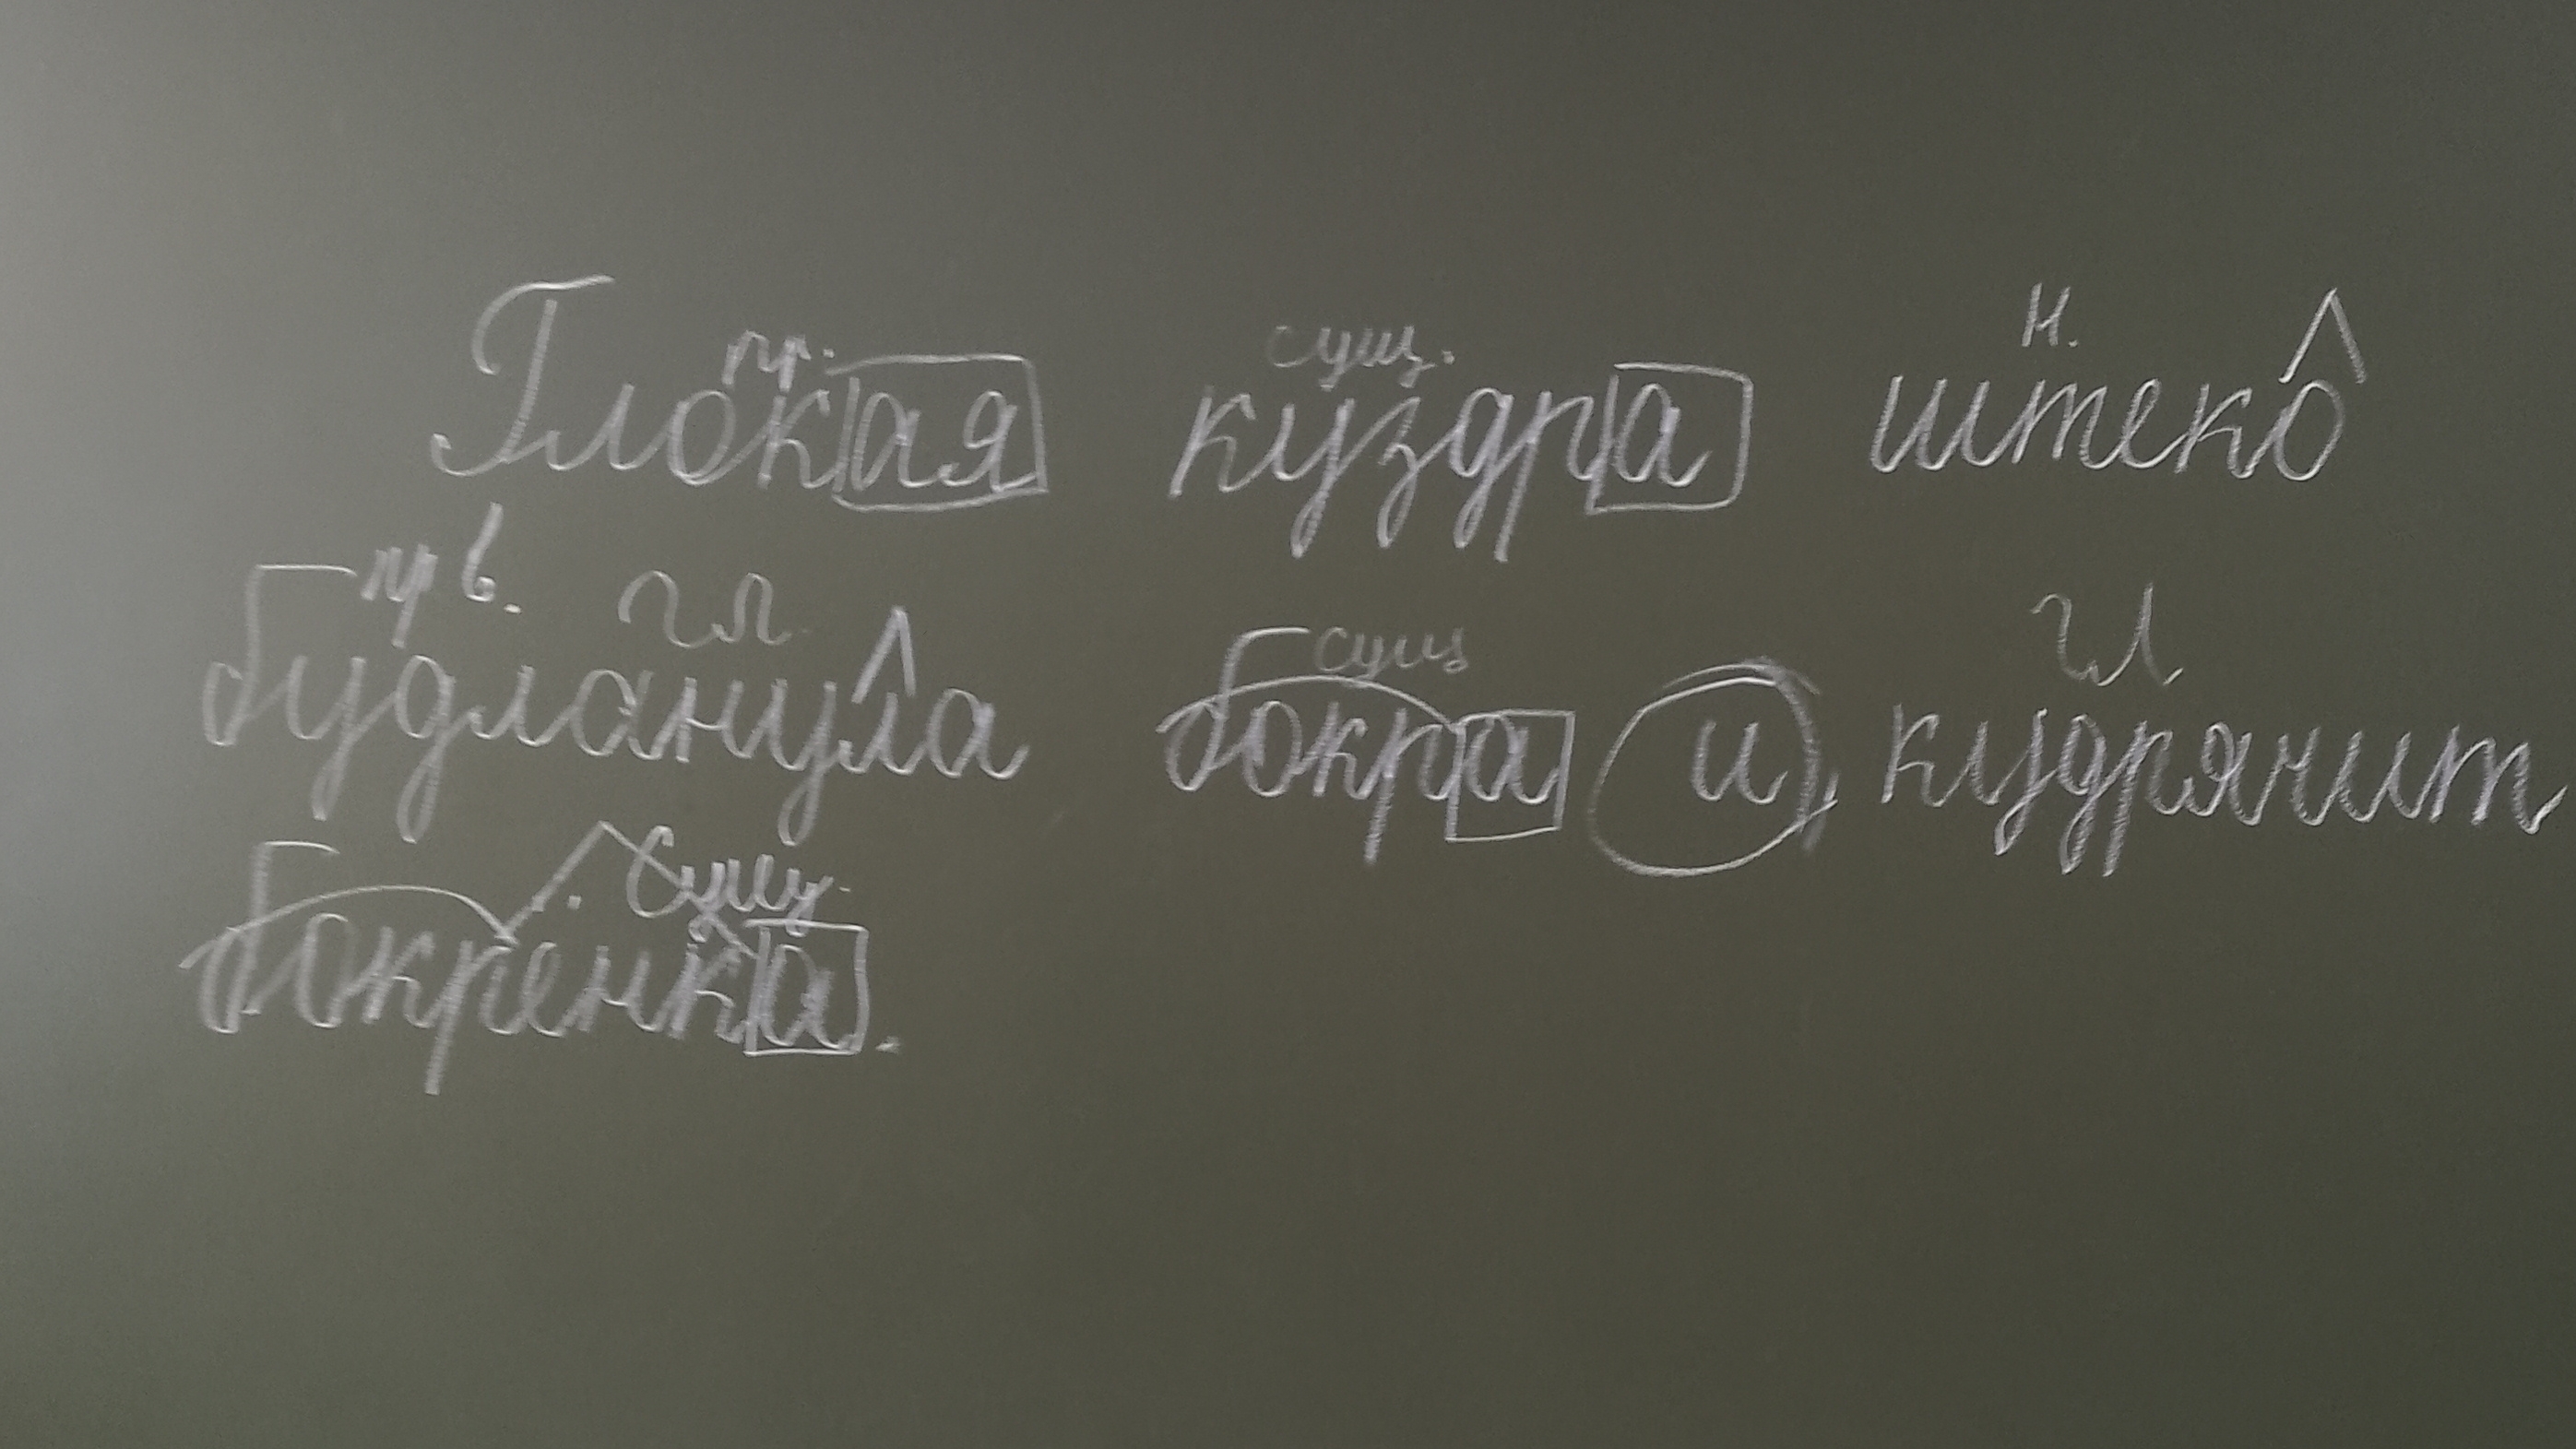 пр. сущ. н.
Глокая куздра штеко
пр в. гл. сущ гл
будланула бокра и кудрячит
сущ.
бокрёнка.